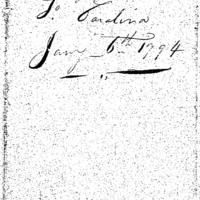 So. Carolina
Jany. 6th. 1794